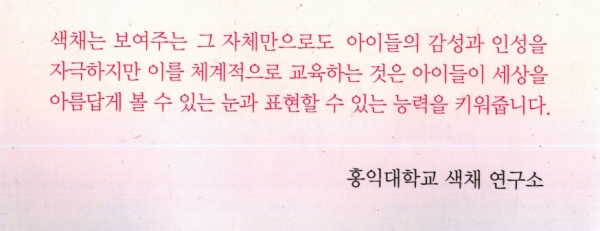 색채는 보여주는 그 자체만으로도 아이들의 감성과 인성을
자극하지만 이를 체계적으로 교육하는 것은 아이들이 세상을
아름답게 볼 수 있는 눈과 표현할 수 있는 능력을 키워줍니다.
홍익대학교 색채 연구소